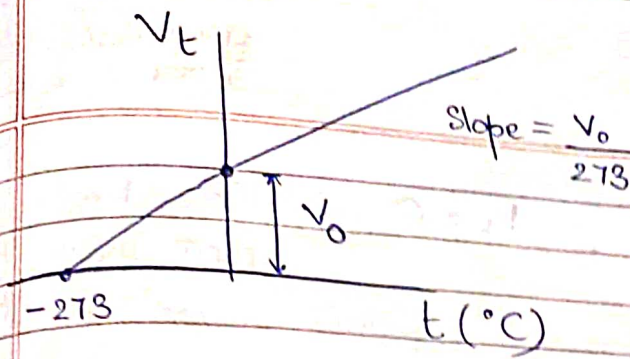 V_t
Slope = V₀
273
V₀
-273
t (°C)